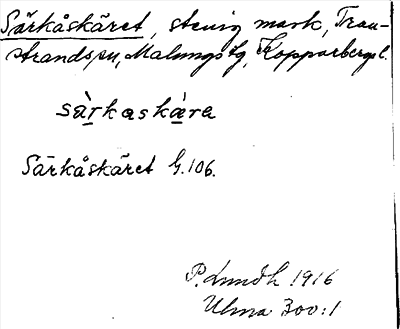 Särkåskäret, stenig mark, Tran-
strands sn, Malungs tg, Kopparbergs l.
sàrkaskàra
Särkåskäret G. 106.
P. Lundh 1916
Ulma 300:1